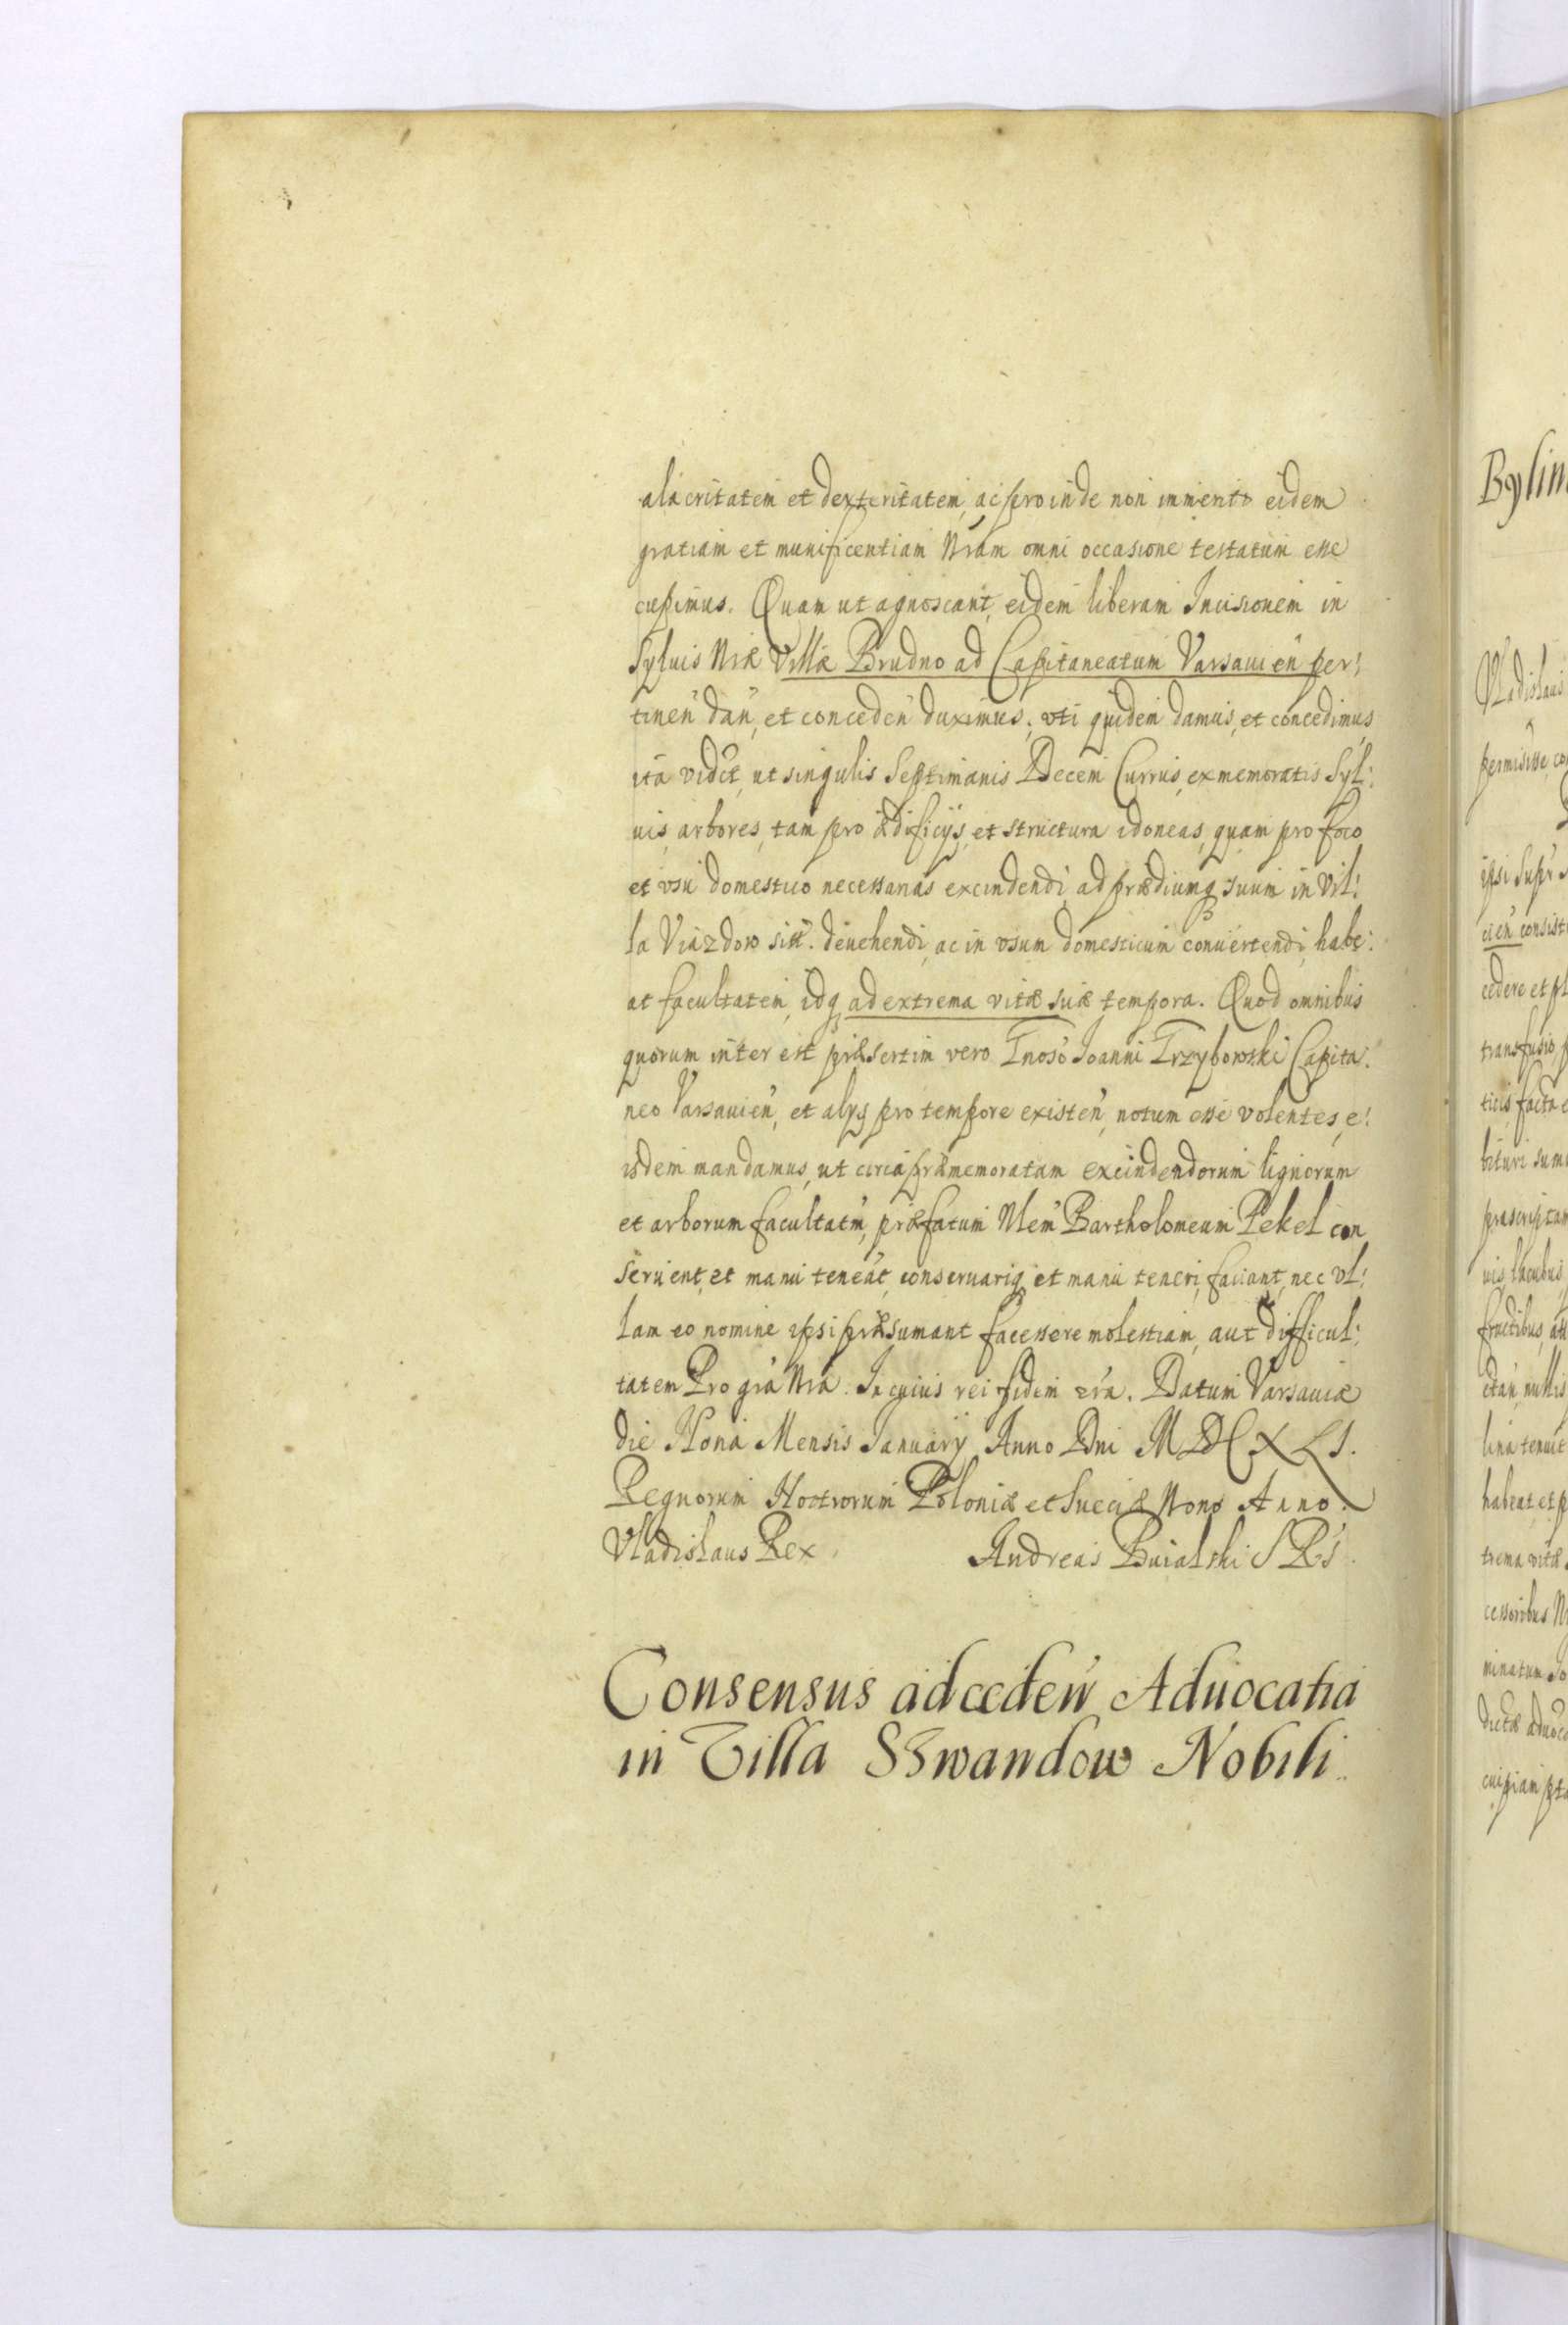 alacritatem et dexteritatem, ac proinde non immerito eidem
gratiam et munificentiam Nram omni occasione testatum esse
cupimus. Quam ut agnoscant, eidem liberam Incisionem in
Syluis Nræ Villæ Brudno ad Capitaneatum Varsauień per:
tineń dań, et concedeń duximus; vti quidem damus, et concedimus
ita vidct, ut singulis Septimanis Decem Currus, ex memoratis Syl:
uis, arbores, tam pro ædificijs, et structura idoneas, quam pro foco
et vsu domestico necessarias excindendi, ad prædiumq suum in Vil:
la Viazdow sitt. deuehendi, ac in vsum domesticum conuertendi, habe:
at facultatem, idq ad extrema vitæ suæ tempora. Quod omnibus
quorum inter est præsertim vero Gnoso Joanni Grzybowski Capita:
neo Varsauień, et alys pro tempore existeń, notum esse volentes, e:
isdem mandamus, ut circa præmemoratam excindendorum lignorum
et arborum facultatm, præfatum Nlem Bartholomeum Pekel con
seruent, et manu teneát, conseruariq et manu teneri, faciant, nec vl:
lam eo nomine ipsi præsumant facessere molestiam, aut difficul:
tatem Pro gra Nra. In cuius rei fidem &ra. Datum Varsauiæ
die Nona Mensis January Anno Dni MDCXLI.
Regnorum Nostrorum Poloniæ et Sueciæ Nono Anno.
Vladislaus Rex Andreas Buialski S R S
Consensus ad cedeń Aduocatia
in Villa Nobili
Bylin
Vladislaus
permisisse, co
ipsi Supr
cień consist
cedere et pl
transfusio
ticis, facta
bituri sum
prascriptam
uis, lacubus,
fructibus, att
etań, nullis
lina tenuit
habeat, et p
trema vitæ
cessoribus N
minatum Jo
dictæ aduoc
cuipiam